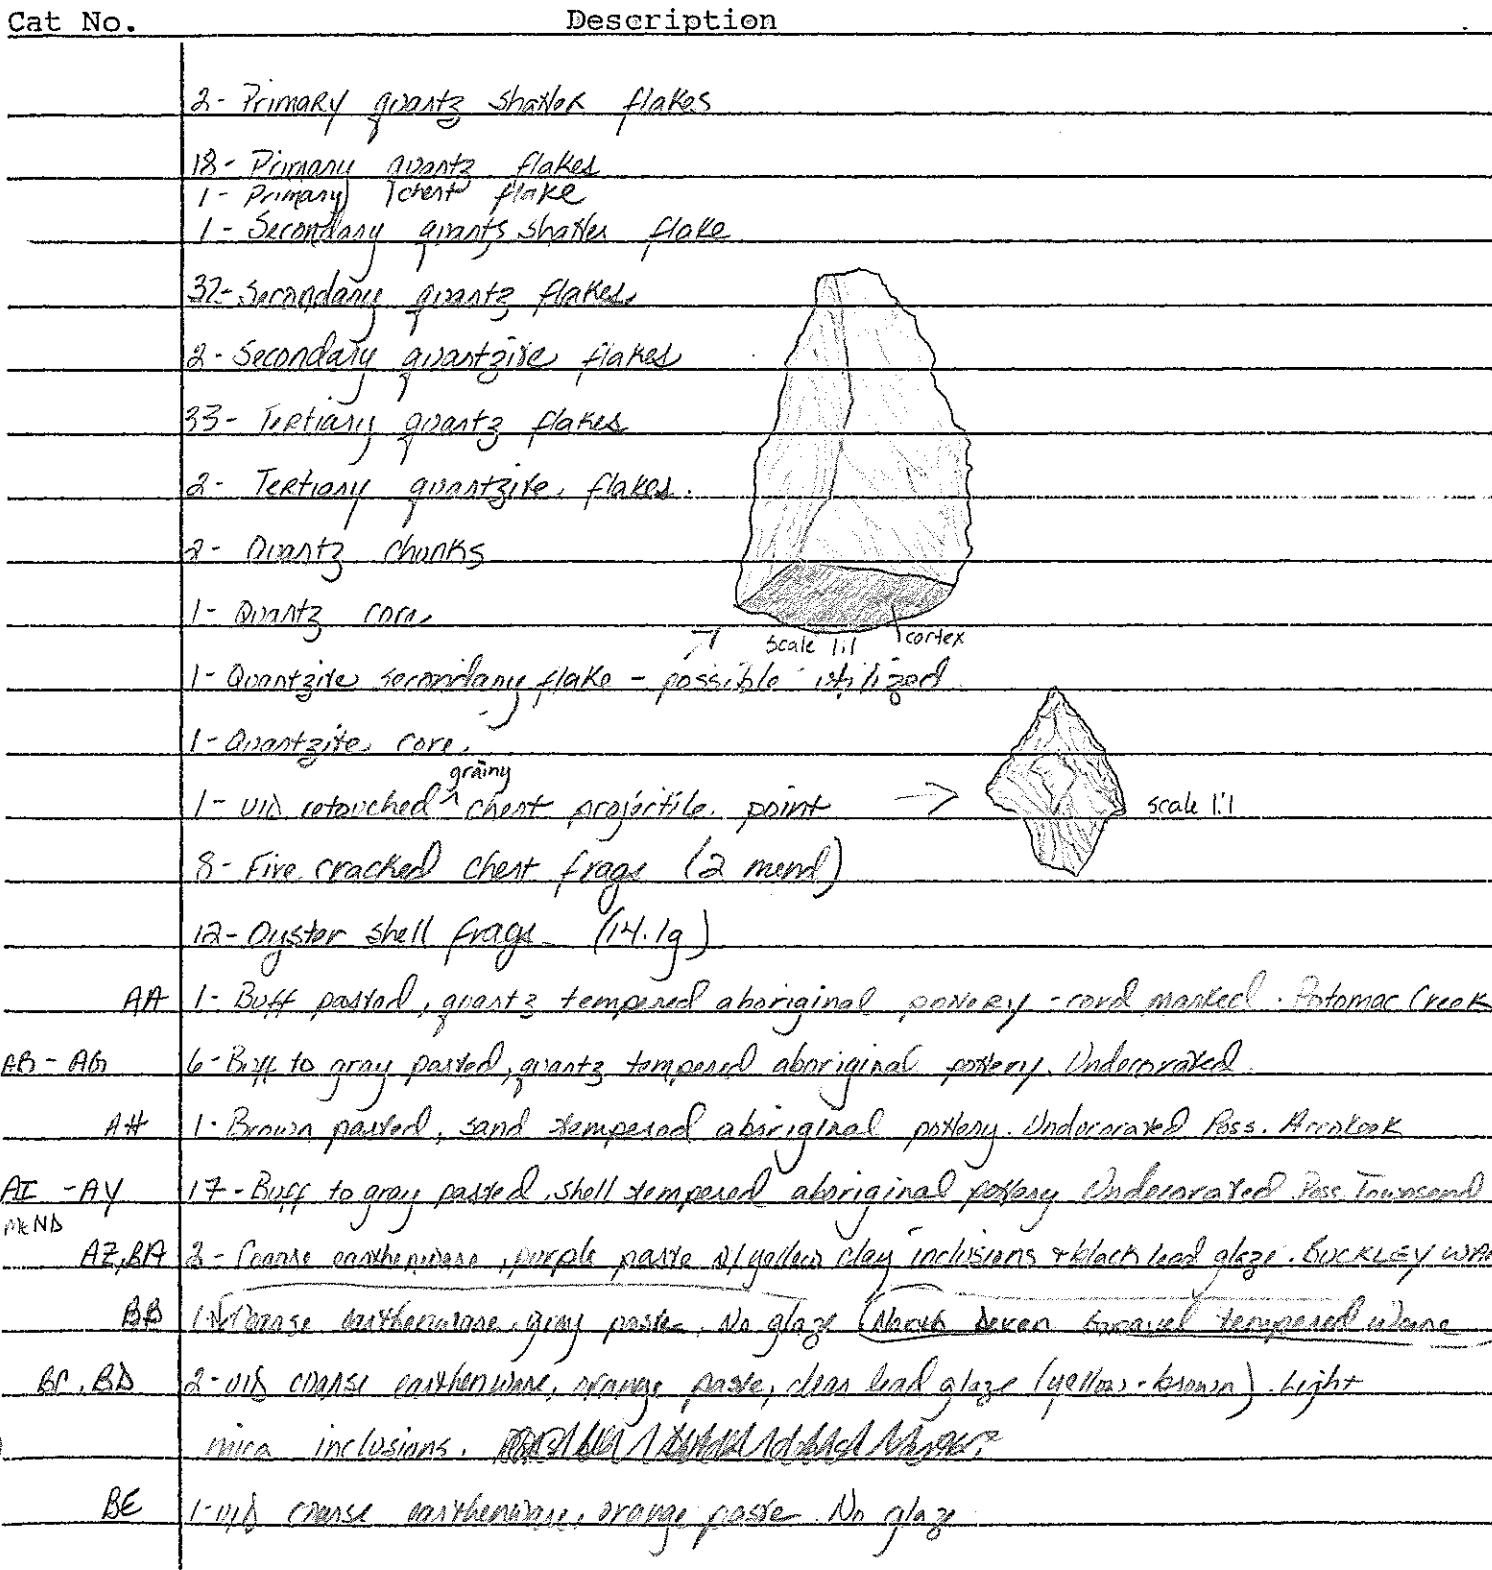 Cat No. Description
2- Primary quartz shatter flakes
18- Primary quartz flakes
1- Primary chert flake
1- Secondary quartz shatter flake
32- Secondary quartz flakes
2- Secondary quartzite flakes
33- Tertiary quartz flakes
2- Tertiary quartzite flakes.
2- Quartz chunks
1- Quartz core
scale 1:1 cortex
1- Quartzite secondary flake - possible utilized
1- Quartzite core
grainy
1- UID retouched ^ chert projectile point → scale 1:1
8- Fire cracked chert frags (2 mend)
12- Oyster shell frags (14.1g)
AA 1- Buff pasted, quartz tempered aboriginal pottery - cord marked. Potomac Creek
AB - AG 6- Buff to gray pasted, quartz tempered aboriginal pottery. Undecorated.
AH 1- Brown pasted, sand tempered aboriginal pottery. Undecorated Poss. Accokeek
AI - AY 17- Buff to gray pasted, shell tempered aboriginal pottery Undecorated Poss. Townsend
MEND
AZ, BA 2- Coarse earthenware, purple paste w/ yellow clay inclusions + black lead glaze. BUCKLEY WARE
BB 1- Coarse earthenware, gray paste. No glaze (North Devon Gravel tempered Ware
BC, BD 2- UID coarse earthenware, orange paste, clear lead glaze (yellow-brown). Light
mica inclusions.
BE 1- UID coarse earthenware, orange paste. No glaze